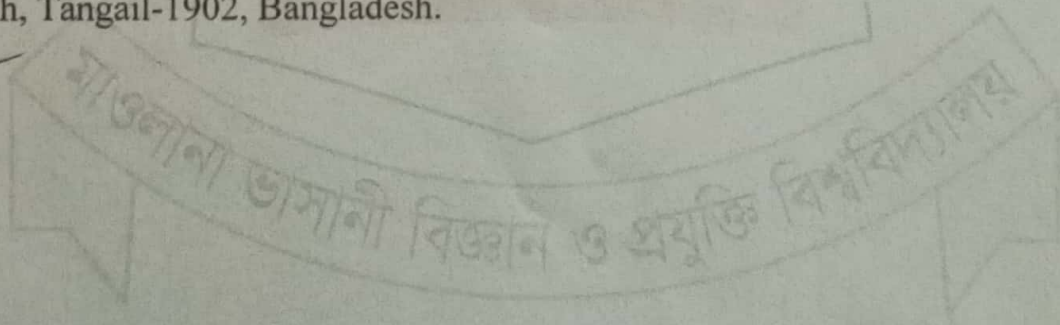 h, Tangail-1902, Bangladesh.
মাওলানা ভাসানী বিজ্ঞান ও প্রযুক্তি বিশ্ববিদ্যালয়